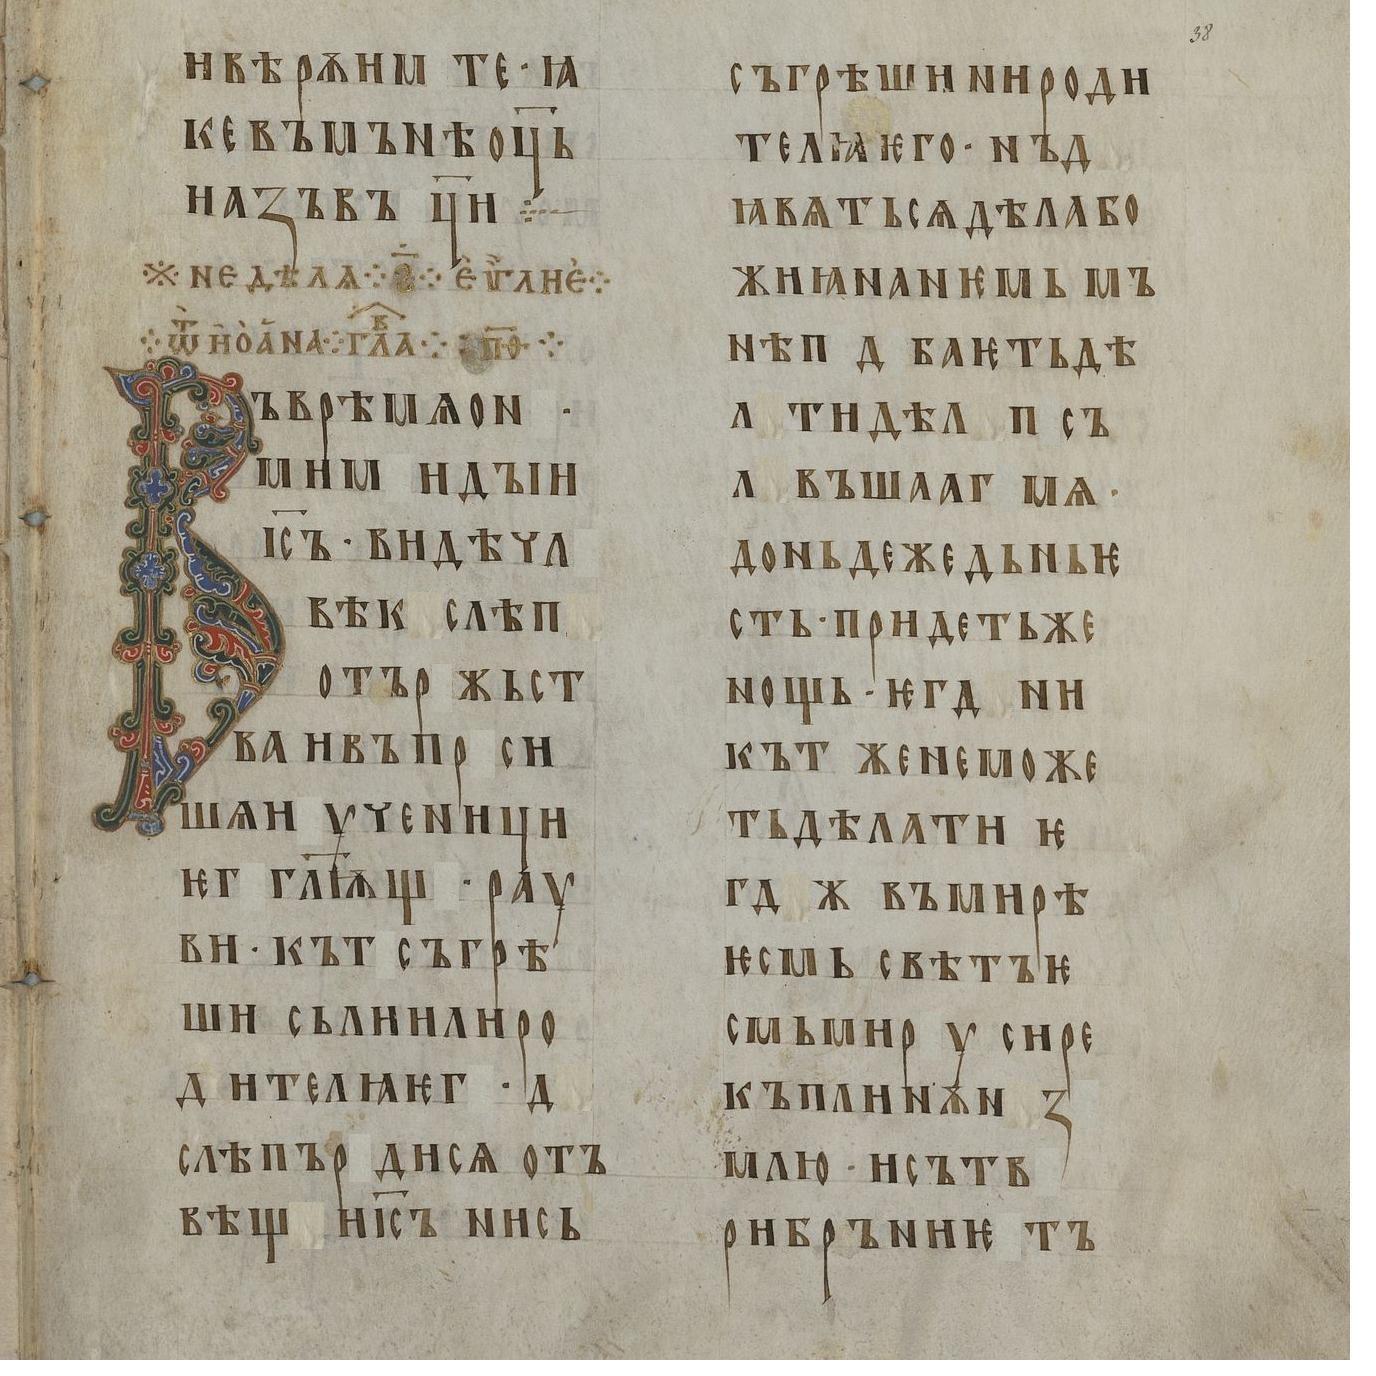 38
и вѣрѫ ими те · ꙗ
ке въ мънѣ оц҃ь
и азъ в ъ о҃ци
※ недѣлѧ · ѕ҃ · еѵ҃глие
ѿ иоана · гла в · п҃ѳ
Въ врѣмѧ он ·
мими и дꙑи
іс҃ъ · видѣ чл
вѣк слѣп
отър жьст
ва и въпр си
шѧ и ученици
ѥг гл҃ѭщ · рау
ви · къ т съгрѣ
ши сь ли или ро
д ителꙗ ѥг · д
слѣпъ р дисѧ отъ
вѣщ и іс҃ъ ни сь
съгрѣши ни роди
телꙗ ѥго · нъ д
ꙗвѧтьсѧ дѣла бо
жиꙗ на нѥмь мъ
нѣ п д баѥть дѣ
л ти дѣл п съ
л въшааг мѧ ·
доньдеже дьнь ѥ
сть · придеть же
нощь · ѥгд ни
къ т же не може
ть дѣлати ѥ
гд ж въ мирѣ
ѥсмь свѣтъ ѥ
смь мир у си ре
къ плинѫ н з
млю · и сътв
ри брьниѥ тъ